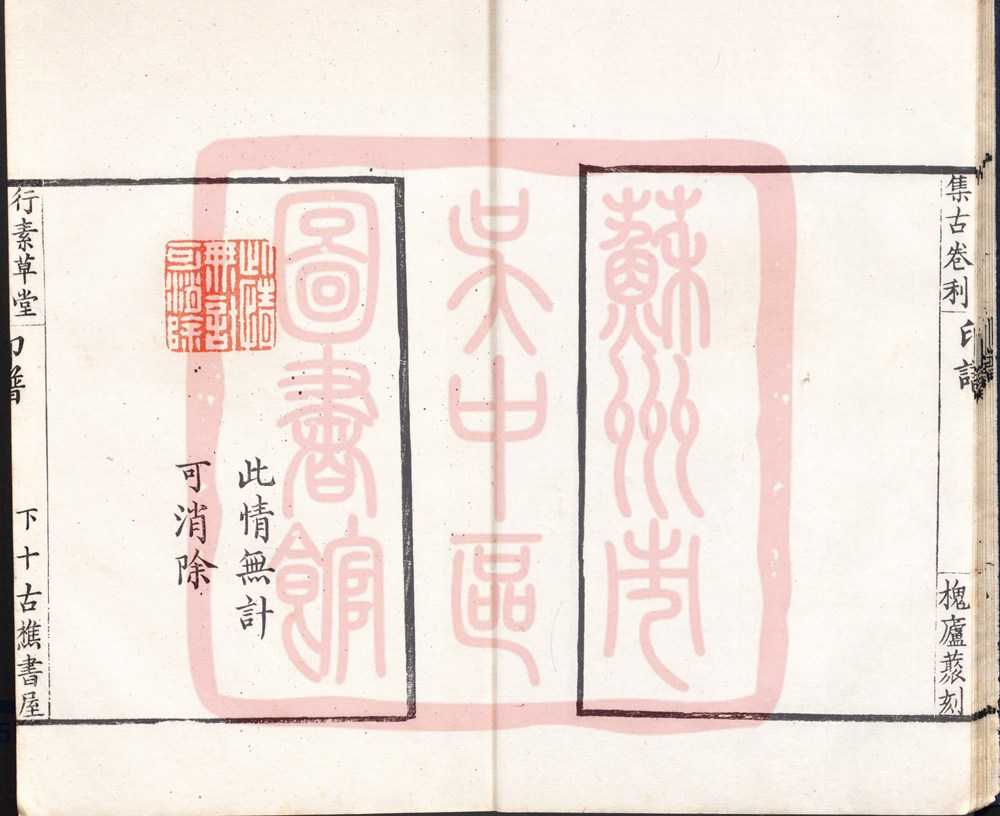 集古卷利
印譜
槐廬藂刻
蘇州市
吳中區
圖書館
此情
無計
可消除
此情無計
可消除
行素草堂
印譜
下十
古樵書屋